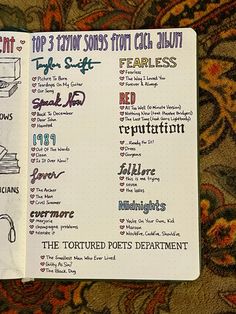 ENT
TOP 3 TAYLOR SONGS FROM EACH ALBUM
Taylor Swift
Picture To Burn
Teardrops On My Guitar
Our Song
Speak Now
Back To December
Dear John
Haunted
1989
Out Of The Woods
Clean
Is It Over Now?
lover
The Archer
The Man
Cruel Summer
evermore
marjorie
champagne problems
tolerate it
FEARLESS
Fearless
The Way I Loved You
Forever & Always
RED
All Too Well (10 Minute Version)
Nothing New (feat. Phoebe Bridgers)
The Last Time (feat. Gary Lightbody)
reputation
...Ready For It?
Dress
Gorgeous
folklore
this is me trying
seven
the lakes
Midnights
You're On Your Own, Kid
Maroon
Would've, Could've, Should've
THE TORTURED POETS DEPARTMENT
The Smallest Man Who Ever Lived
Guilty As Sin?
The Black Dog
ICIANS